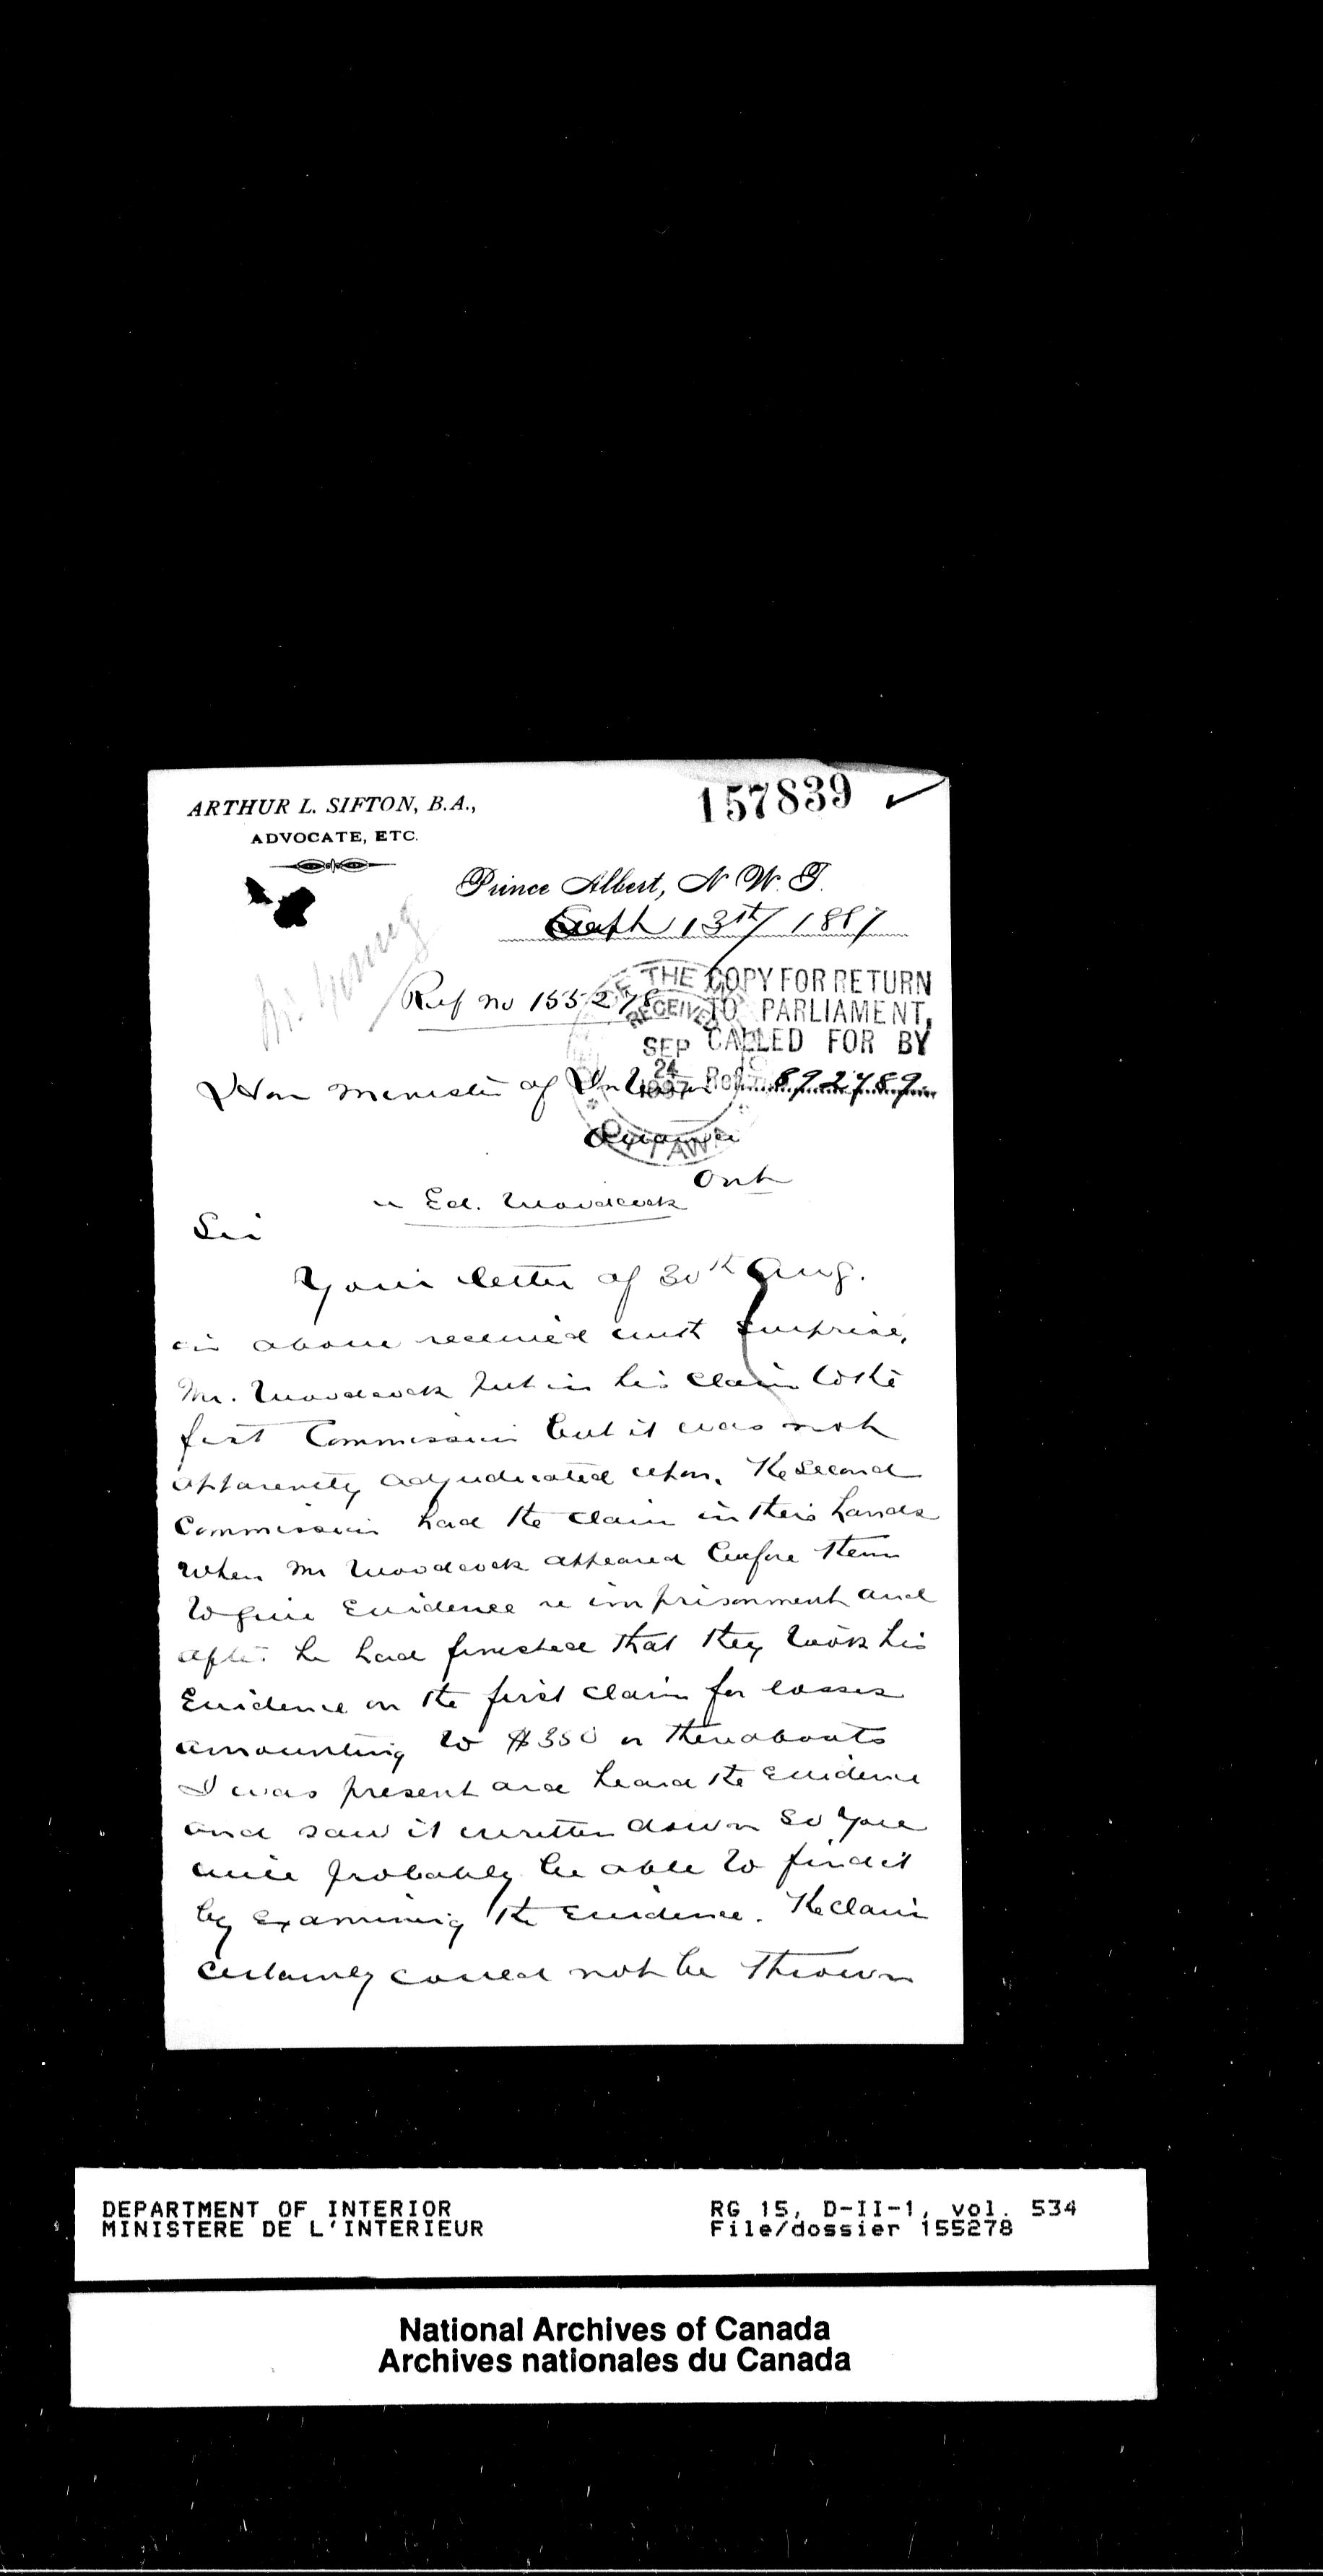 ARTHUR L. SIFTON, B.A.,
ADVOCATE, ETC.
157839
Prince Albert, N. W. T.
Sept 13th 1887
Ref no 155278
THE
RECEIVED
SEP
24
1887
OTTAWA
COPY FOR RETURN
TO PARLIAMENT,
CALLED FOR BY
Ref. 892789
Hon Minister of Interior
Ottawa
Ont
re Ed. Woodcock
Sir
Your letter of 30th Aug.
in above received with surprise.
Mr. Woodcock put in his claim to the
first Commission but it was not
apparently adjudicated upon. The second
Commission had the claim in their hands
when Mr Woodcock appeared before them
to give Evidence re imprisonment and
after he had finished that they took his
Evidence on the first claim for losses
amounting to $350 or thereabouts
I was present and heard the Evidence
and saw it written down so you
will probably be able to find it
by examining the Evidence. The claim
certainly could not be thrown
DEPARTMENT OF INTERIOR
MINISTERE DE L'INTERIEUR
RG 15, D-II-1, vol. 534
File/dossier 155278
National Archives of Canada
Archives nationales du Canada